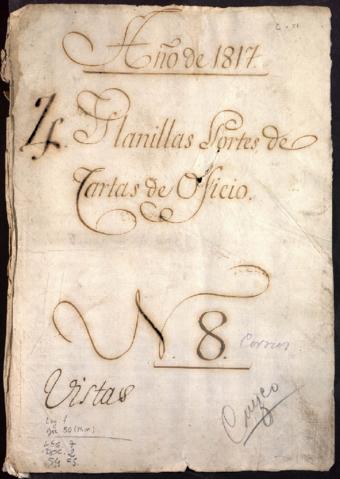 Año de 1817.
Planillas Portes de
Cartas de Oficio.
N. 8.
Correos
Vistas
Cuzco
Leg. 1
LEG. 7
DOC. 2